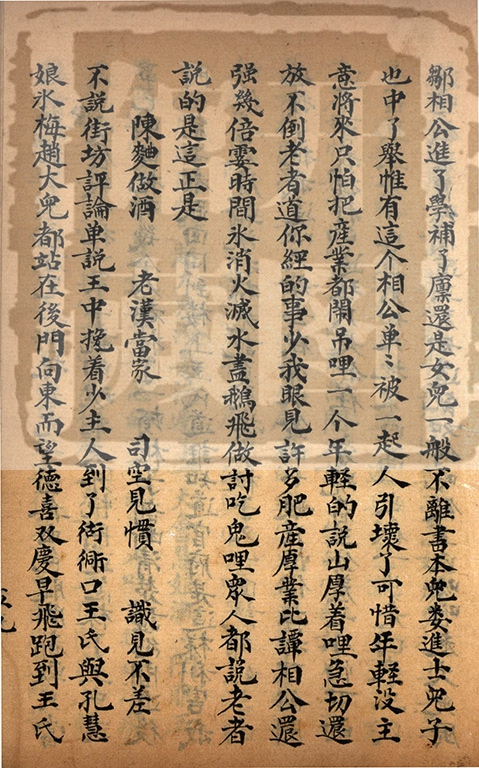 鄒相公進了學補了廩還是女兒一般不離書本兒婁進士兒子
也中了舉惟有這个相公单〻被一起人引壞了可惜年軽没主
意將來只怕把産業都鬧吊哩一个年軽的說山厚着哩急切還
放不倒老者道你經的事少我眼見許多肥産厚業比譚相公還
强幾倍霎時間氷消火滅水盡鵝飛做討吃鬼哩衆人都説老者
説的是這正是
陳麯做酒 老漢當家 司空見慣 識見不差
不說街坊評論单説王中挽着少主人到了衚衕口王氏與孔慧
娘氷梅趙大兒都站在後門向東而望德喜双慶早飛跑到王氏